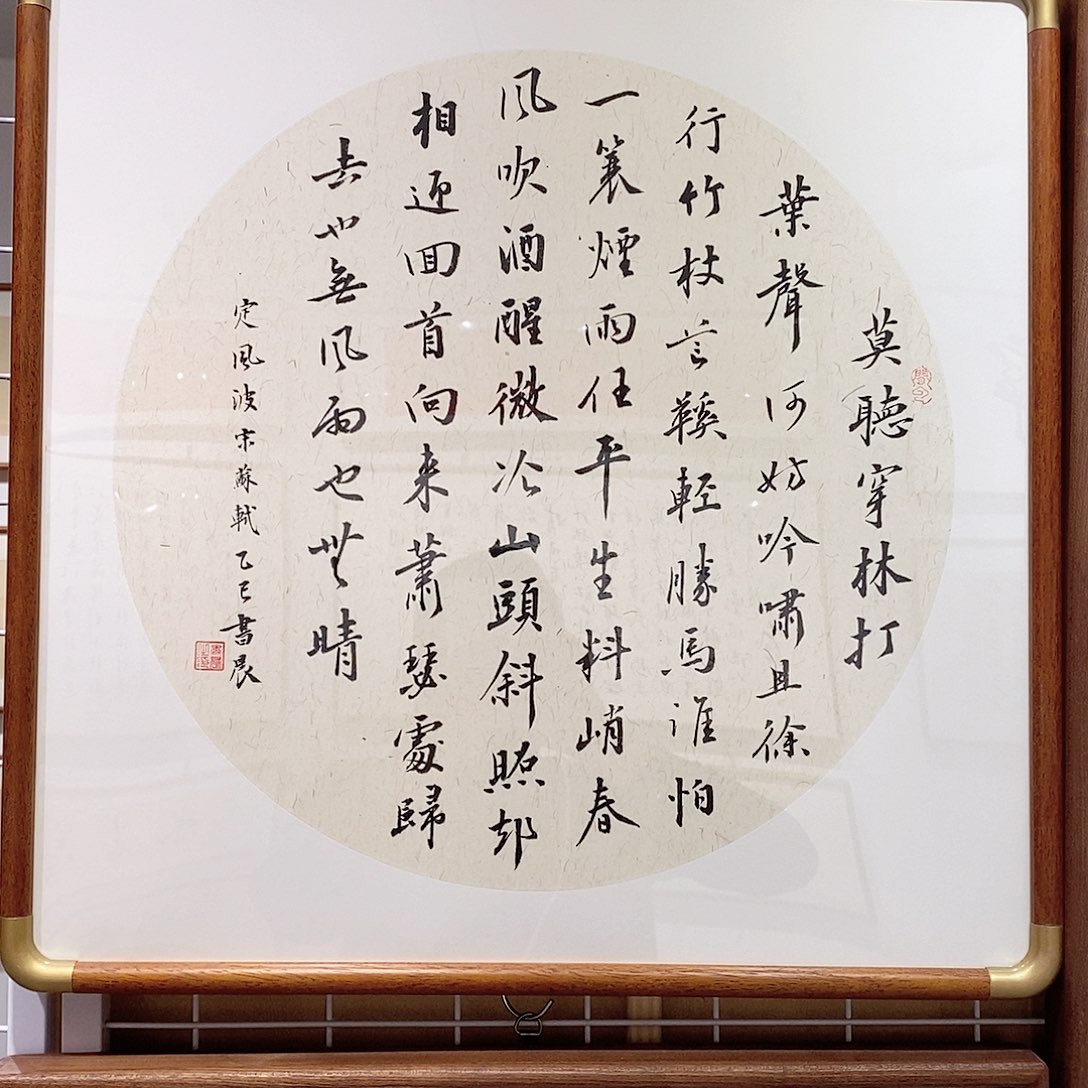 莫聽穿林打
葉聲何妨吟嘯且徐
行竹杖芒鞵輕勝馬誰怕
一蓑煙雨任平生料峭春
風吹酒醒微冷山頭斜照却
相迎回首向来蕭瑟處歸
去也無風雨也無晴
定風波宋蘇軾乙巳書晨